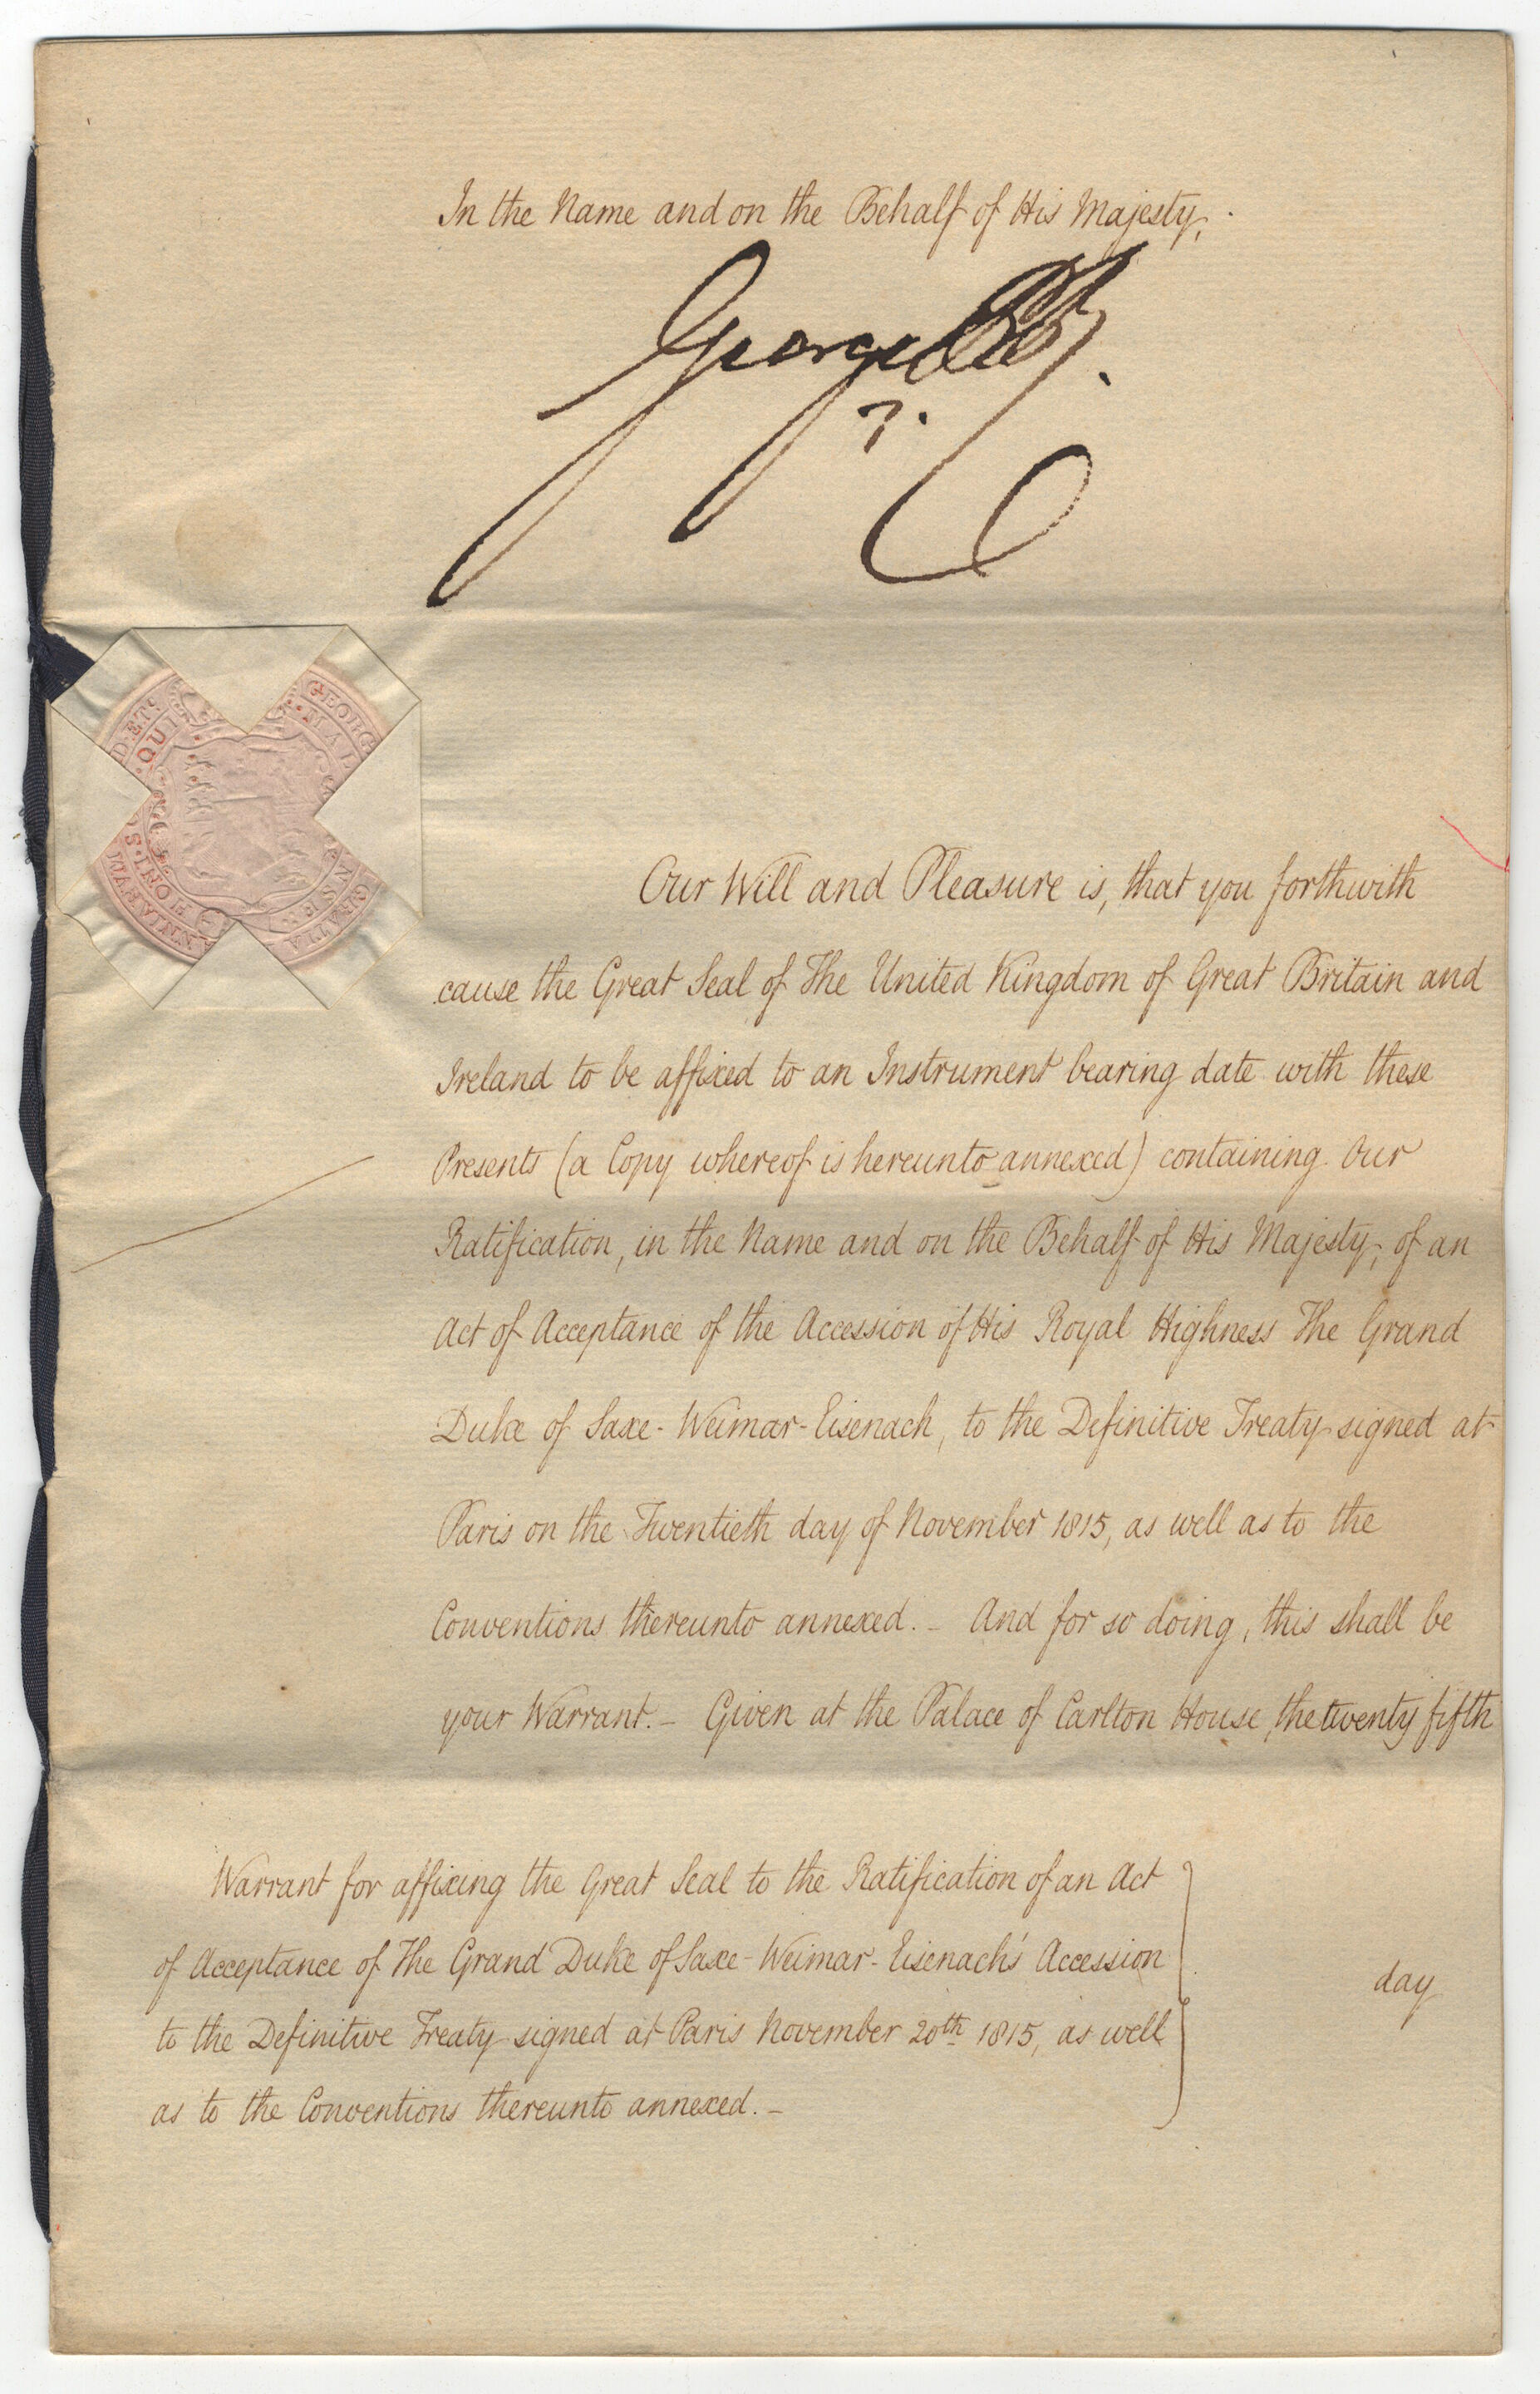 In the Name and on the Behalf of His Majesty,
George P. R.
Our Will and Pleasure is, that you forthwith
cause the Great Seal of The United Kingdom of Great Britain and
Ireland to be affixed to an Instrument bearing date with these
Presents (a Copy whereof is hereunto annexed) containing Our
Ratification, in the Name and on the Behalf of His Majesty, of an
Act of Acceptance of the Accession of His Royal Highness The Grand
Duke of Saxe-Weimar-Eisenach, to the Definitive Treaty signed at
Paris on the Twentieth day of November 1815, as well as to the
Conventions thereunto annexed. – And for so doing, this shall be
your Warrant. – Given at the Palace of Carlton House, the twenty fifth
day
Warrant for affixing the Great Seal to the Ratification of an Act
of Acceptance of The Grand Duke of Saxe-Weimar-Eisenach's Accession
to the Definitive Treaty signed at Paris November 20th 1815, as well
as to the Conventions thereunto annexed. –